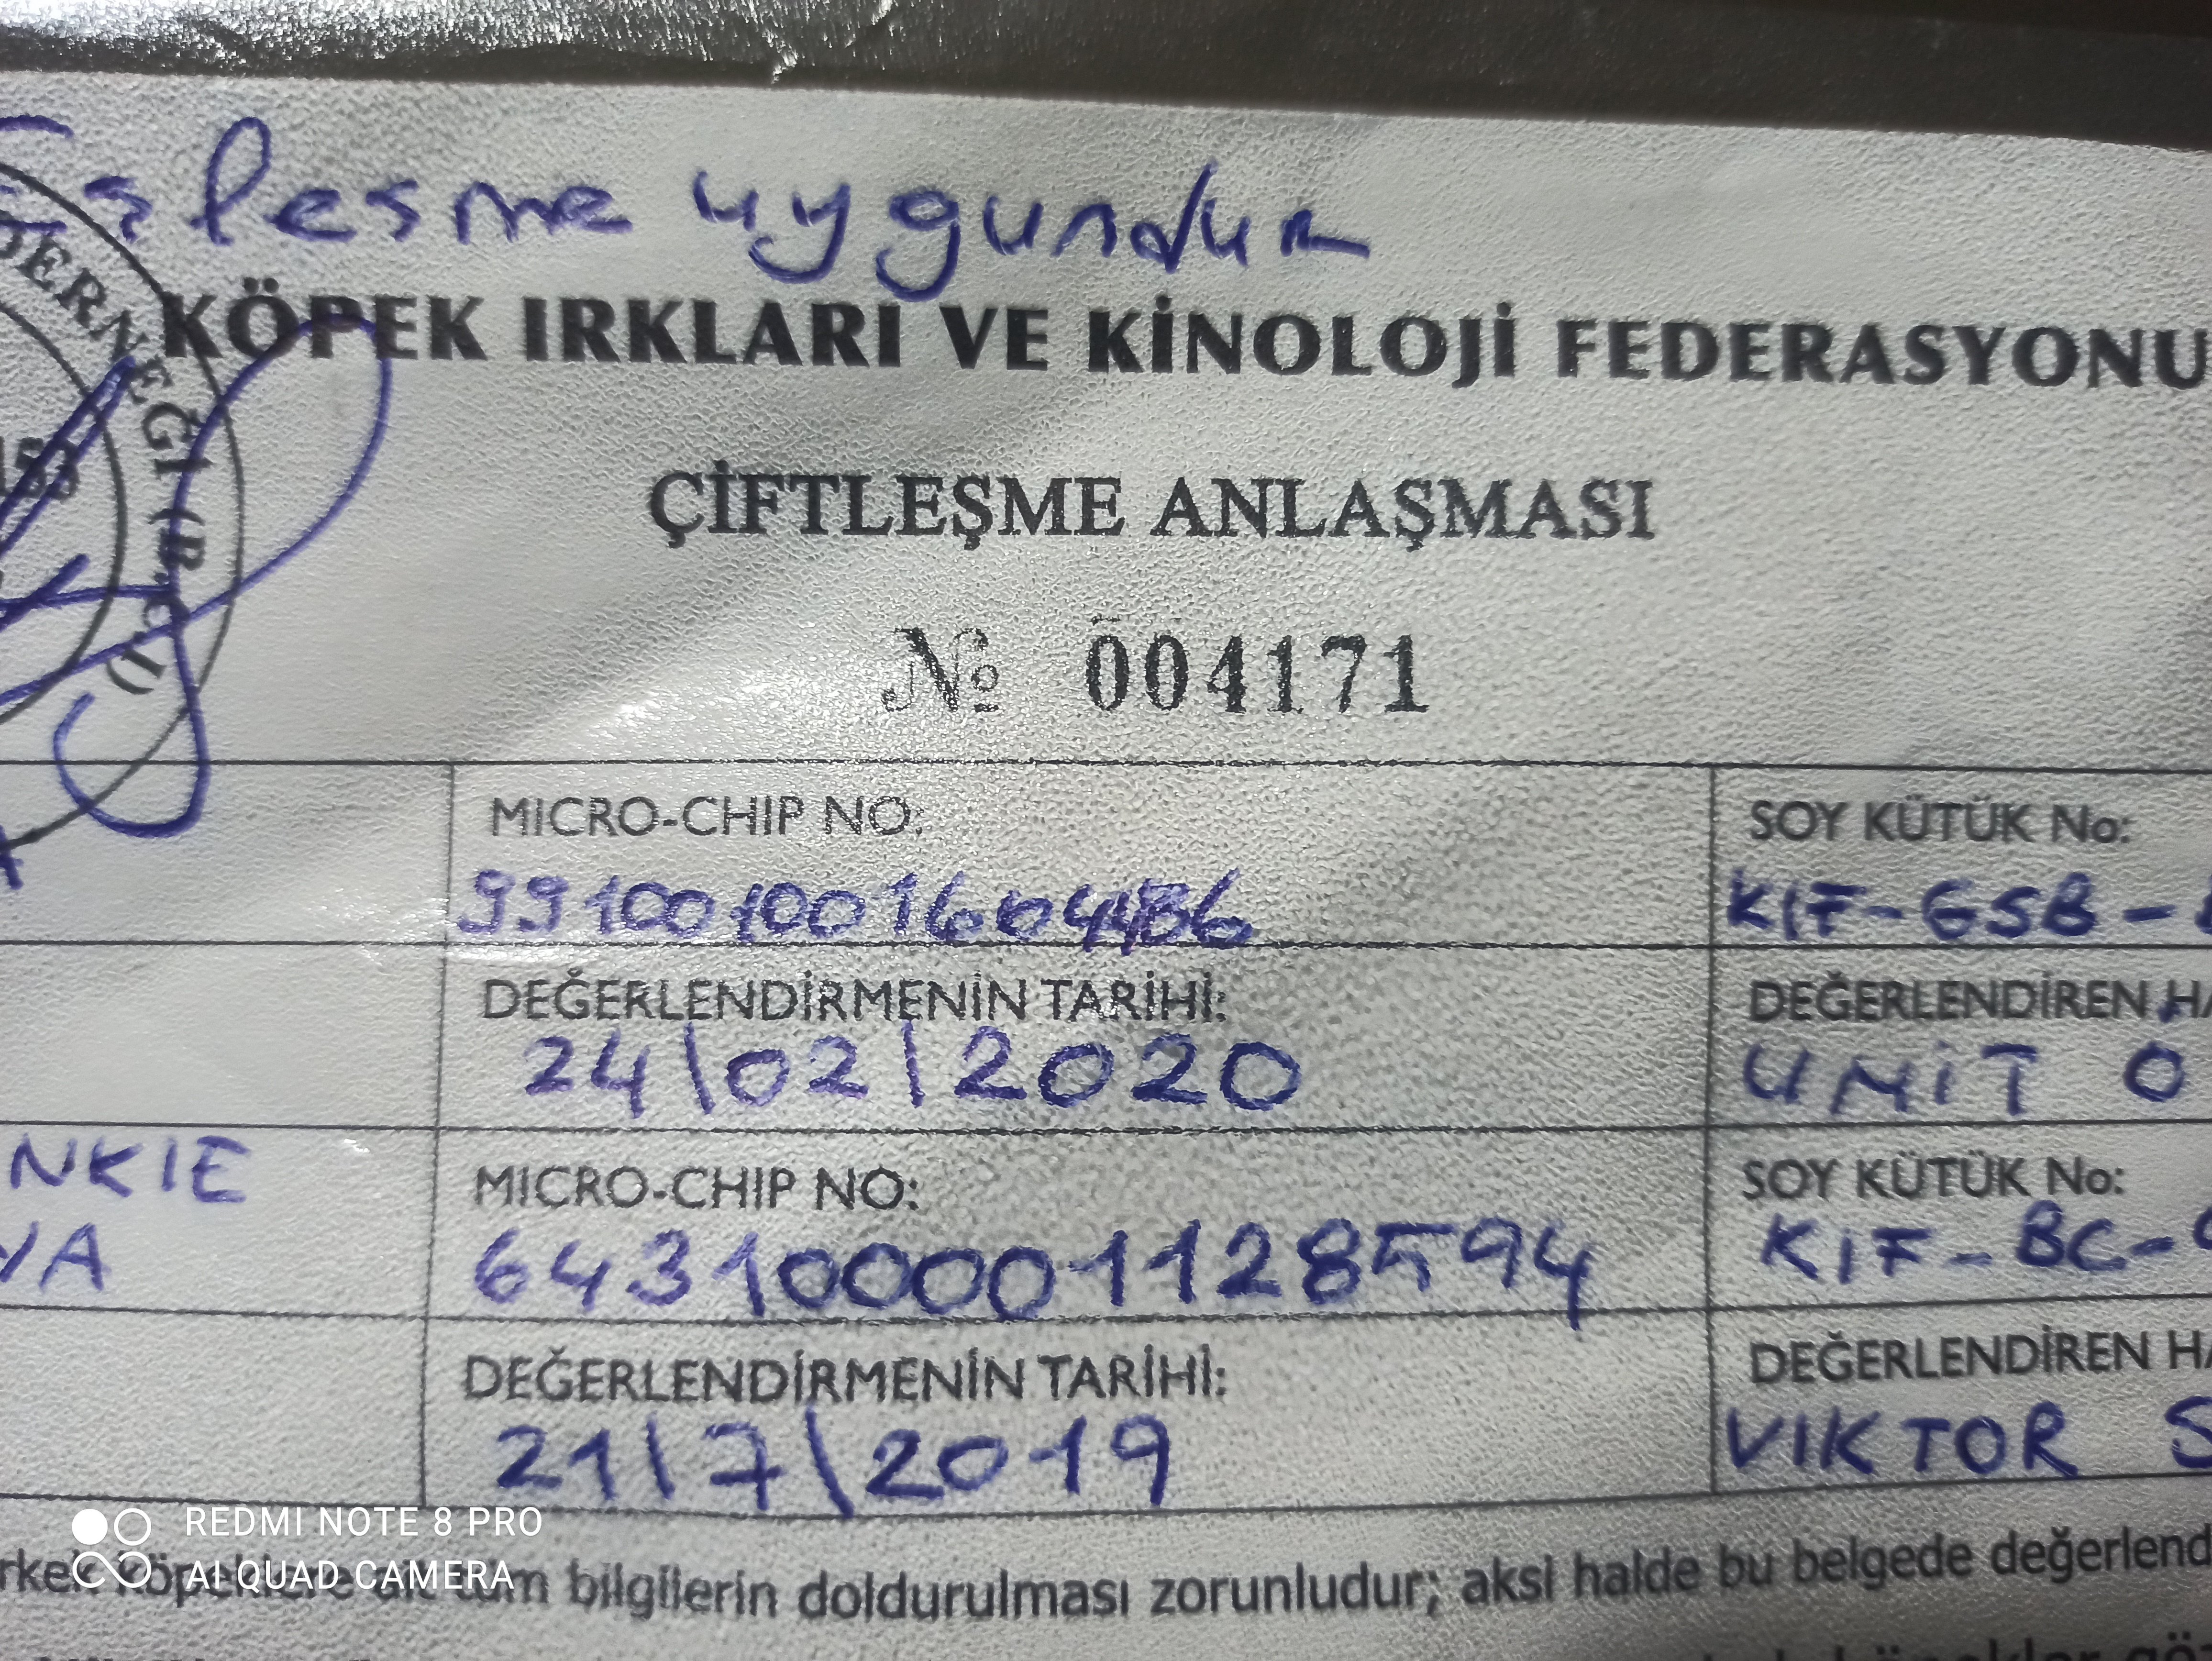 Eşleşme uygundur
DERNEĞİ (B.C.I)
KÖPEK IRKLARI VE KİNOLOJİ FEDERASYONU
ÇİFTLEŞME ANLAŞMASI
№ 004171
MICRO-CHIP NO:
SOY KÜTÜK No:
KIF-GSB-
DEĞERLENDİRMENİN TARİHİ:
DEĞERLENDİREN HA
24/02/2020
UMİT O
NKIE
VA
MICRO-CHIP NO:
SOY KÜTÜK No:
643100001128594
KIF-BC-
DEĞERLENDİRMENİN TARİHİ:
DEĞERLENDİREN HA
21/7/2019
VIKTOR S
REDMI NOTE 8 PRO
AI QUAD CAMERA
rkek köpeklere ait tüm bilgilerin doldurulması zorunludur; aksi halde bu belgede değerlend